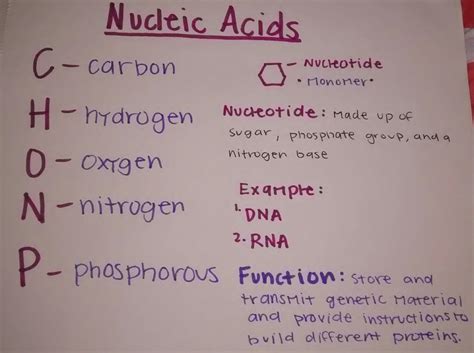 Nucleic Acids
C - carbon
H - hydrogen
O - oxygen
N - nitrogen
P - phosphorous
- Nucleotide
• Monomer •
Nucleotide: Made up of
sugar, phosphate group, and a
nitrogen base
Example:
1. DNA
2. RNA
Function: Store and
transmit genetic material
and provide instructions to
build different proteins.